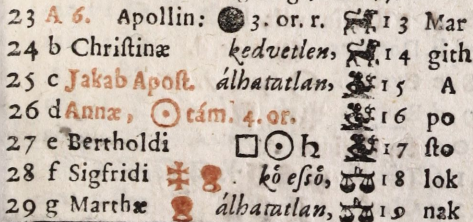 23 A 6. Apollin: 3. or. r. 13 Mar
24 b Chriſtinæ kedvetlen, 14 gith
25 c Jakab Apoſt. álhatatlan, 15 A
26 d Annæ, ☉ tám. 4. or. 16 po
27 e Bertholdi □ ☉ ♄ 17 ſto
28 f Sigfridi kô eſsô, 18 lok
29 g Marthæ álhatatlan, 19 nak